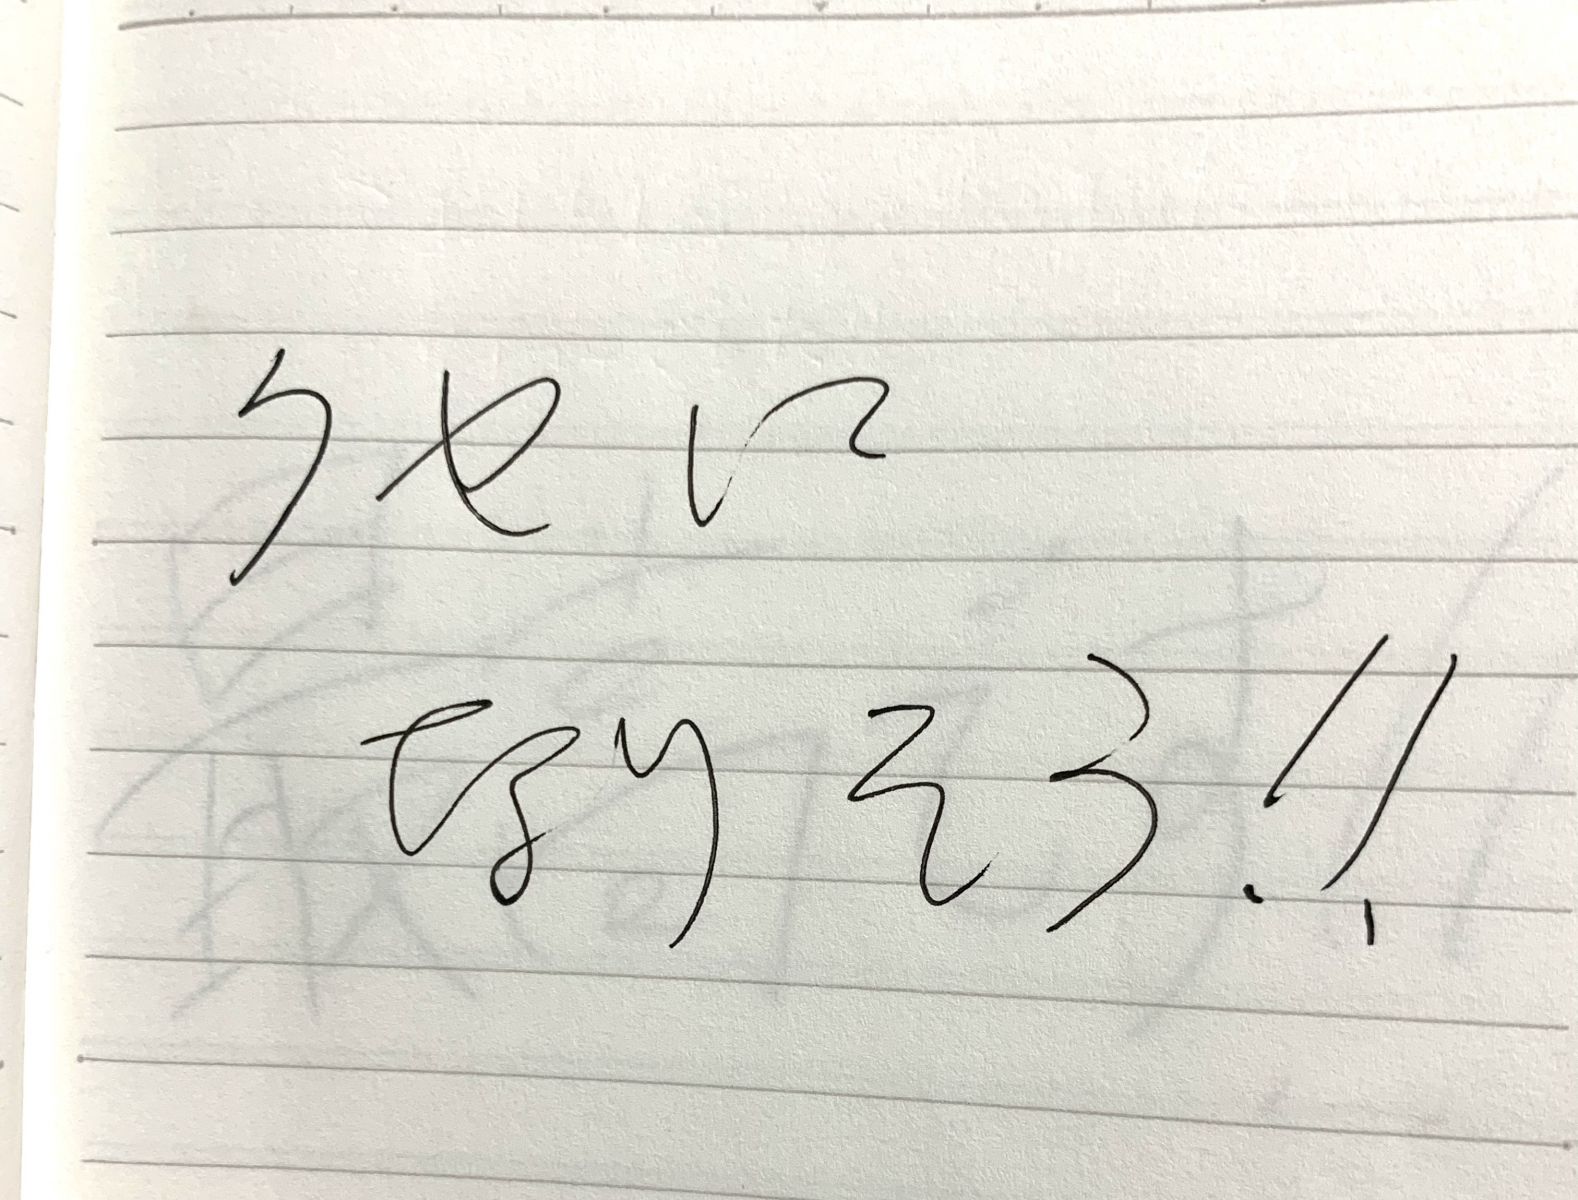 クセに
なりそう!!